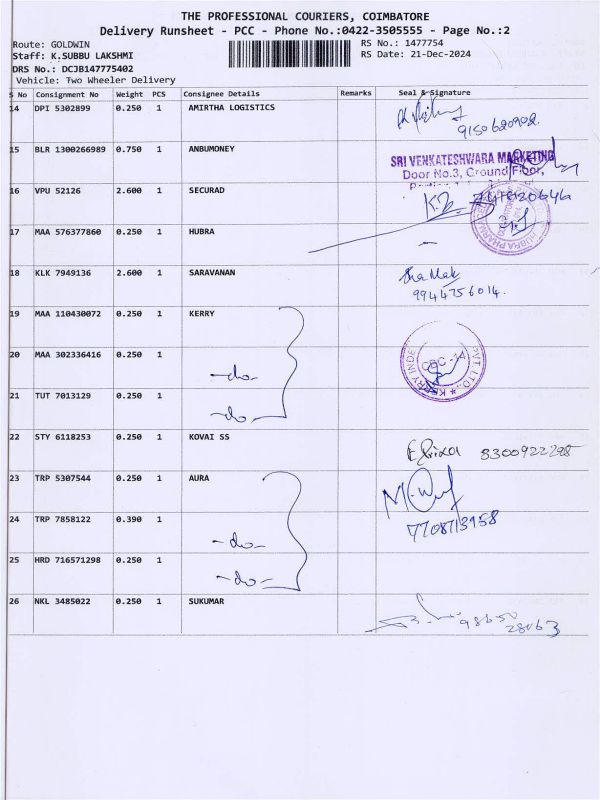 THE PROFESSIONAL COURIERS, COIMBATORE
Delivery Runsheet - PCC - Phone No.:0422-3505555 - Page No.:2
Route: GOLDWIN RS No.: 1477754
Staff: K.SUBBU LAKSHMI RS Date: 21-Dec-2024
DRS No.: DCJB147775402
Vehicle: Two Wheeler Delivery
S No Consignment No Weight PCS Consignee Details Remarks Seal & Signature
14 DPI 5302899 0.250 1 AMIRTHA LOGISTICS
9150620902
15 BLR 1300266989 0.750 1 ANBUMONEY
SRI VENKATESHWARA MARKETING
Door No.3, Ground Floor,
16 VPU 52126 2.600 1 SECURAD
17 MAA 576377860 0.250 1 HUBRA
18 KLK 7949136 2.600 1 SARAVANAN
9944756014.
19 MAA 110430072 0.250 1 KERRY
20 MAA 302336416 0.250 1
-do-
21 TUT 7013129 0.250 1
-do-
22 STY 6118253 0.250 1 KOVAI SS
8300922298
23 TRP 5307544 0.250 1 AURA
7708713958
24 TRP 7858122 0.390 1
-do-
25 HRD 716571298 0.250 1
-do-
26 NKL 3485022 0.250 1 SUKUMAR
98650
28063